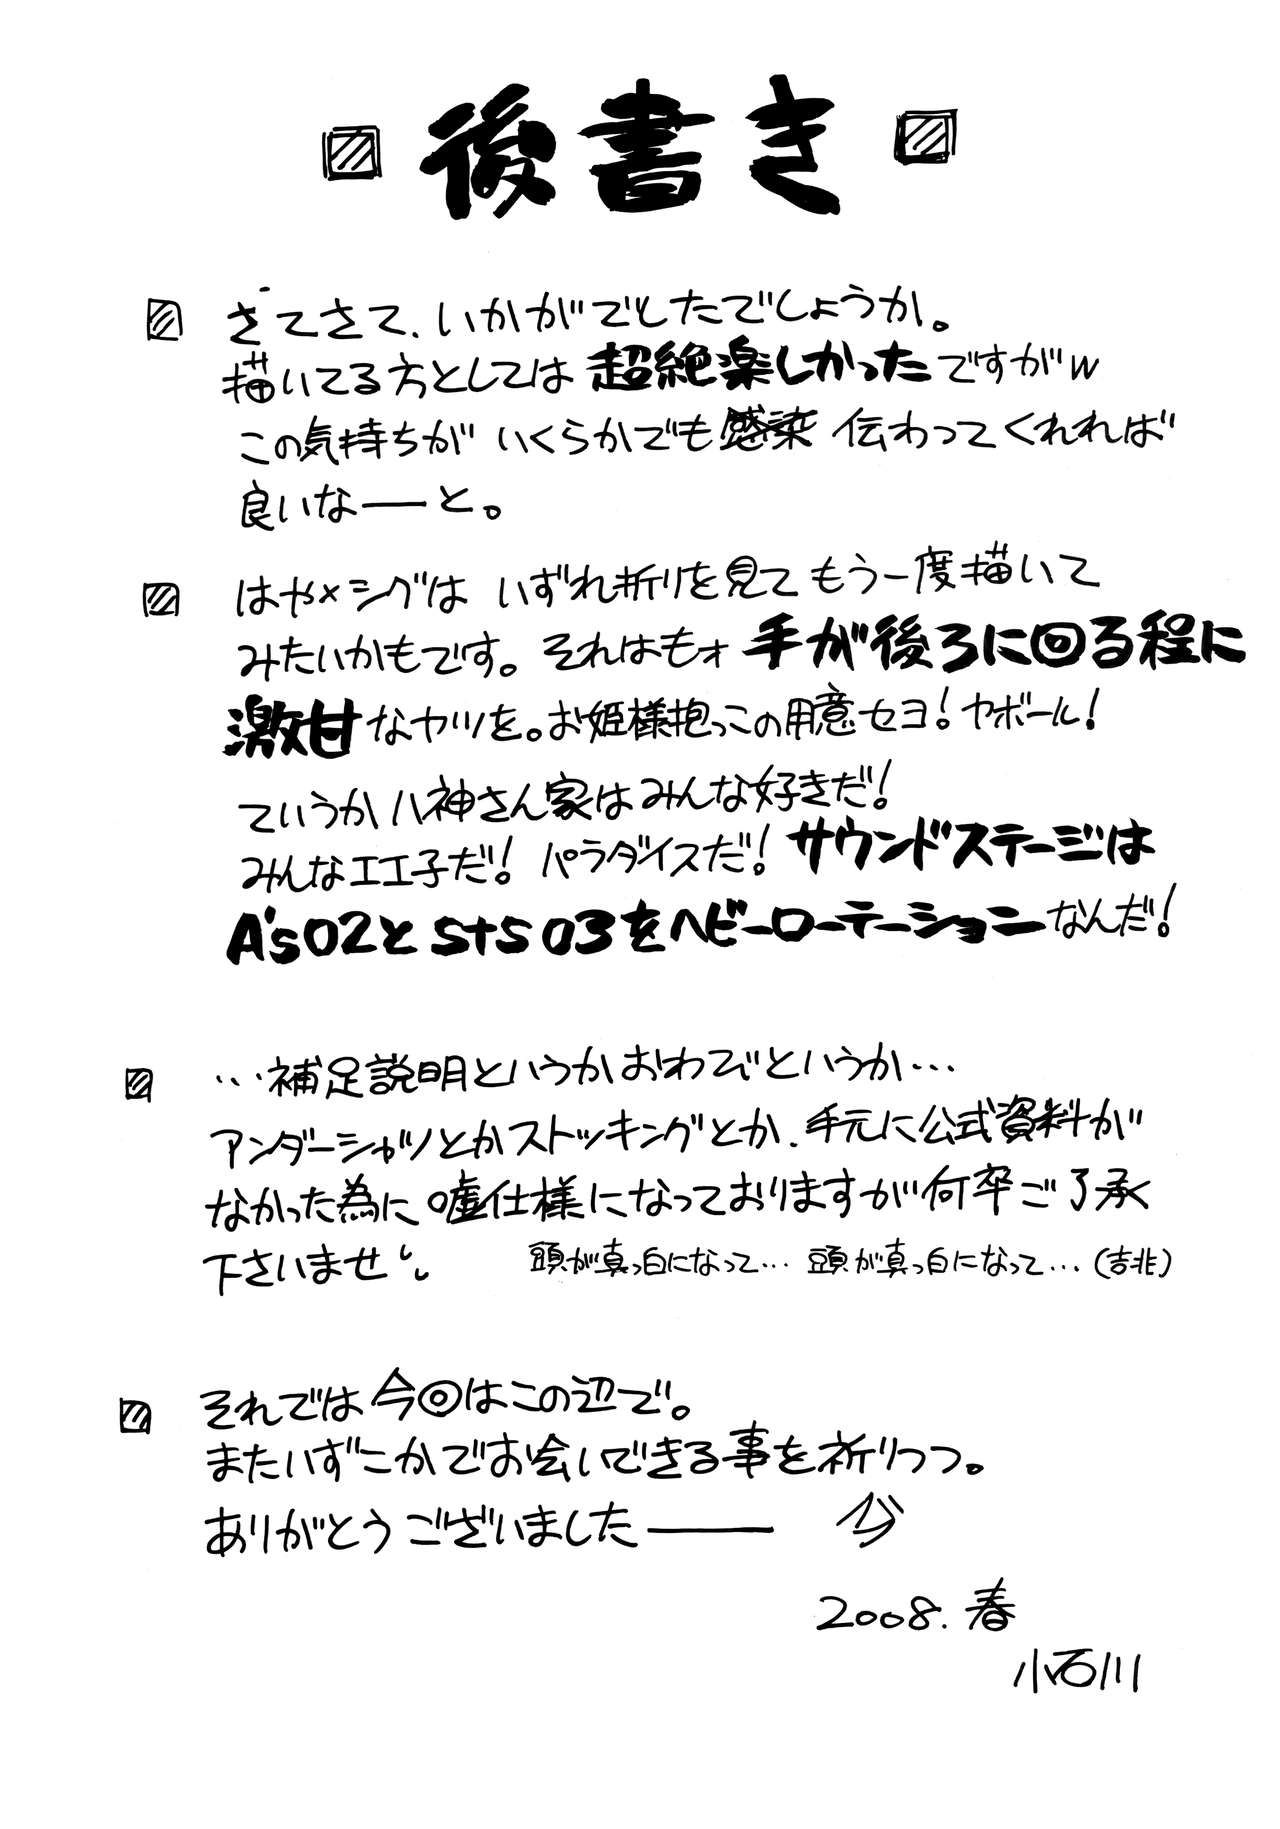 後書き
さてさて、いかがでしたでしょうか。
描いてる方としては超絶楽しかったですがw
この気持ちがいくらかでも感染 伝わってくれれば
良いなーと。
はや×シグはいずれ折りを見てもう一度描いて
みたいかもです。それはもォ手が後ろに回る程に
激甘なヤツを。お姫様抱っこの用意セヨ!ヤボール!
ていうか八神さん家はみんな好きだ!
みんなエエ子だ!パラダイスだ!サウンドステージは
A's02とStS03をヘビーローテーションなんだ!
…補足説明というかおわびというか…
アンダーシャツとかストッキングとか、手元に公式資料が
なかった為に嘘仕様になっておりますが何卒ご了承
下さいませ。
頭が真っ白になって…頭が真っ白になって…(吉兆)
それでは今回はこの辺で。
またいずこかでお会いできる事を祈りつつ。
ありがとうございましたー
2008.春
小石川